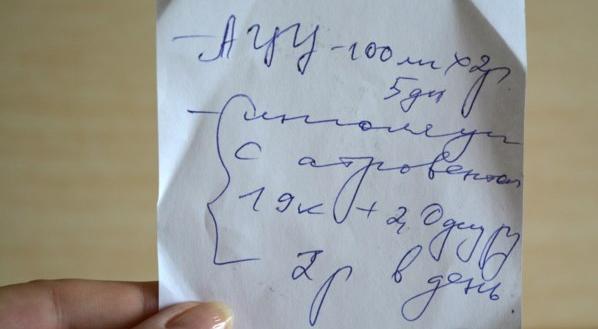 - АЦЦ - 100 мг х 2р
5 дн
- ингаляции
с атровентом
19к + 2,0 физ р
2р в день